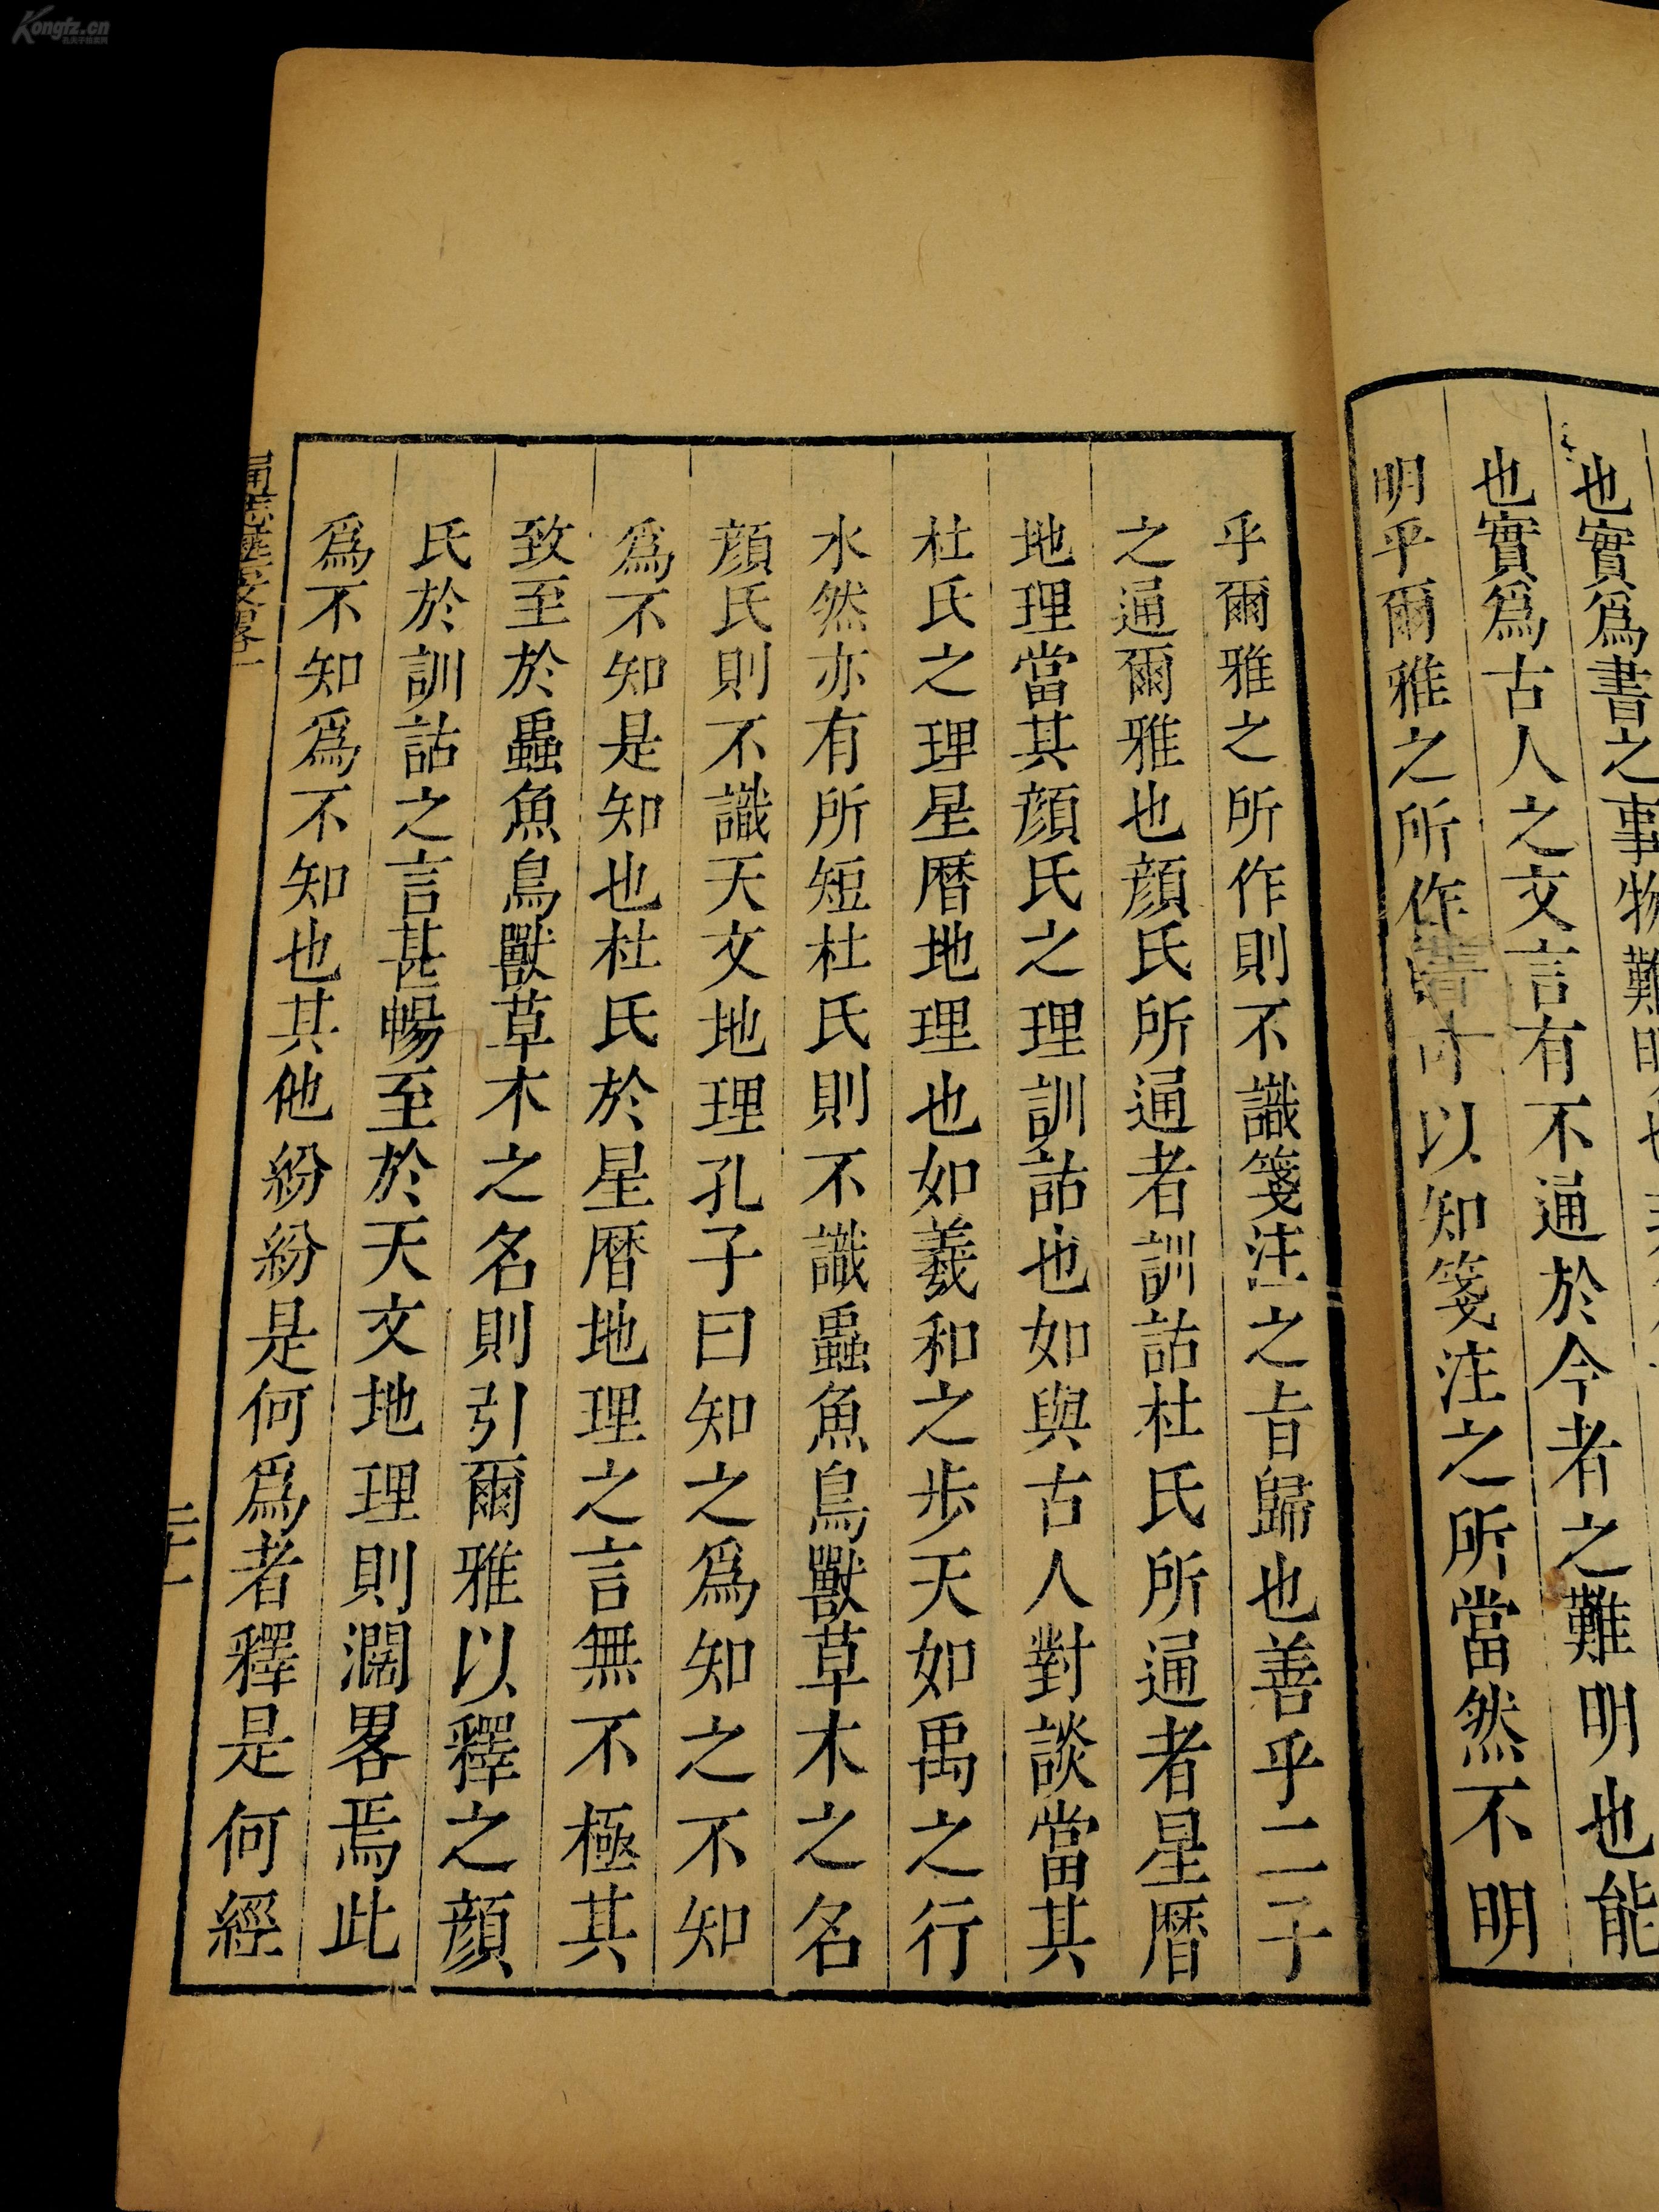 Kongfz.cn
也實爲書之事物難明也
也實爲古人之文言有不通於今者之難明也能
明乎爾雅之所作則可以知箋注之所當然不明
乎爾雅之所作則不識箋注之旨歸也善乎二子
之通爾雅也顔氏所通者訓詁杜氏所通者星暦
地理當其顔氏之理訓詁也如與古人對談當其
杜氏之理星暦地理也如羲和之步天如禹之行
水然亦有所短杜氏則不識蟲魚鳥獸草木之名
顔氏則不識天文地理孔子曰知之爲知之不知
爲不知是知也杜氏於星暦地理之言無不極其
致至於蟲魚鳥獸草木之名則引爾雅以釋之顔
氏於訓詁之言甚暢至於天文地理則濶畧焉此
爲不知爲不知也其他紛紛是何爲者釋是何經